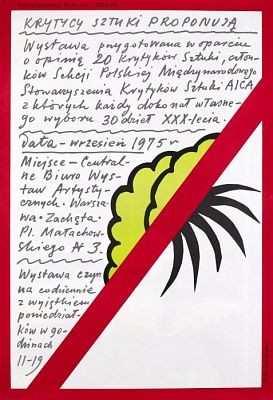 Ministerstwo Kultury i Sztuki
KRYTYCY SZTUKI PROPONUJĄ
Wystawa przygotowana w oparciu
o opinię 20 Krytyków Sztuki, człon-
ków Sekcji Polskiej Międzynarodowego
Stowarzyszenia Krytyków Sztuki AICA
z których każdy dokonał własne-
go wyboru 30 dzieł XXX-lecia.
Data - wrzesień 1975 r
Miejsce - Central-
ne Biuro Wys-
taw Artysty-
cznych. Warsza-
wa. Zachęta.
Pl. Małachow-
skiego № 3.
Wystawa czyn
na codziennie
z wyjątkiem
poniedział-
ków w go-
dzinach
11-19